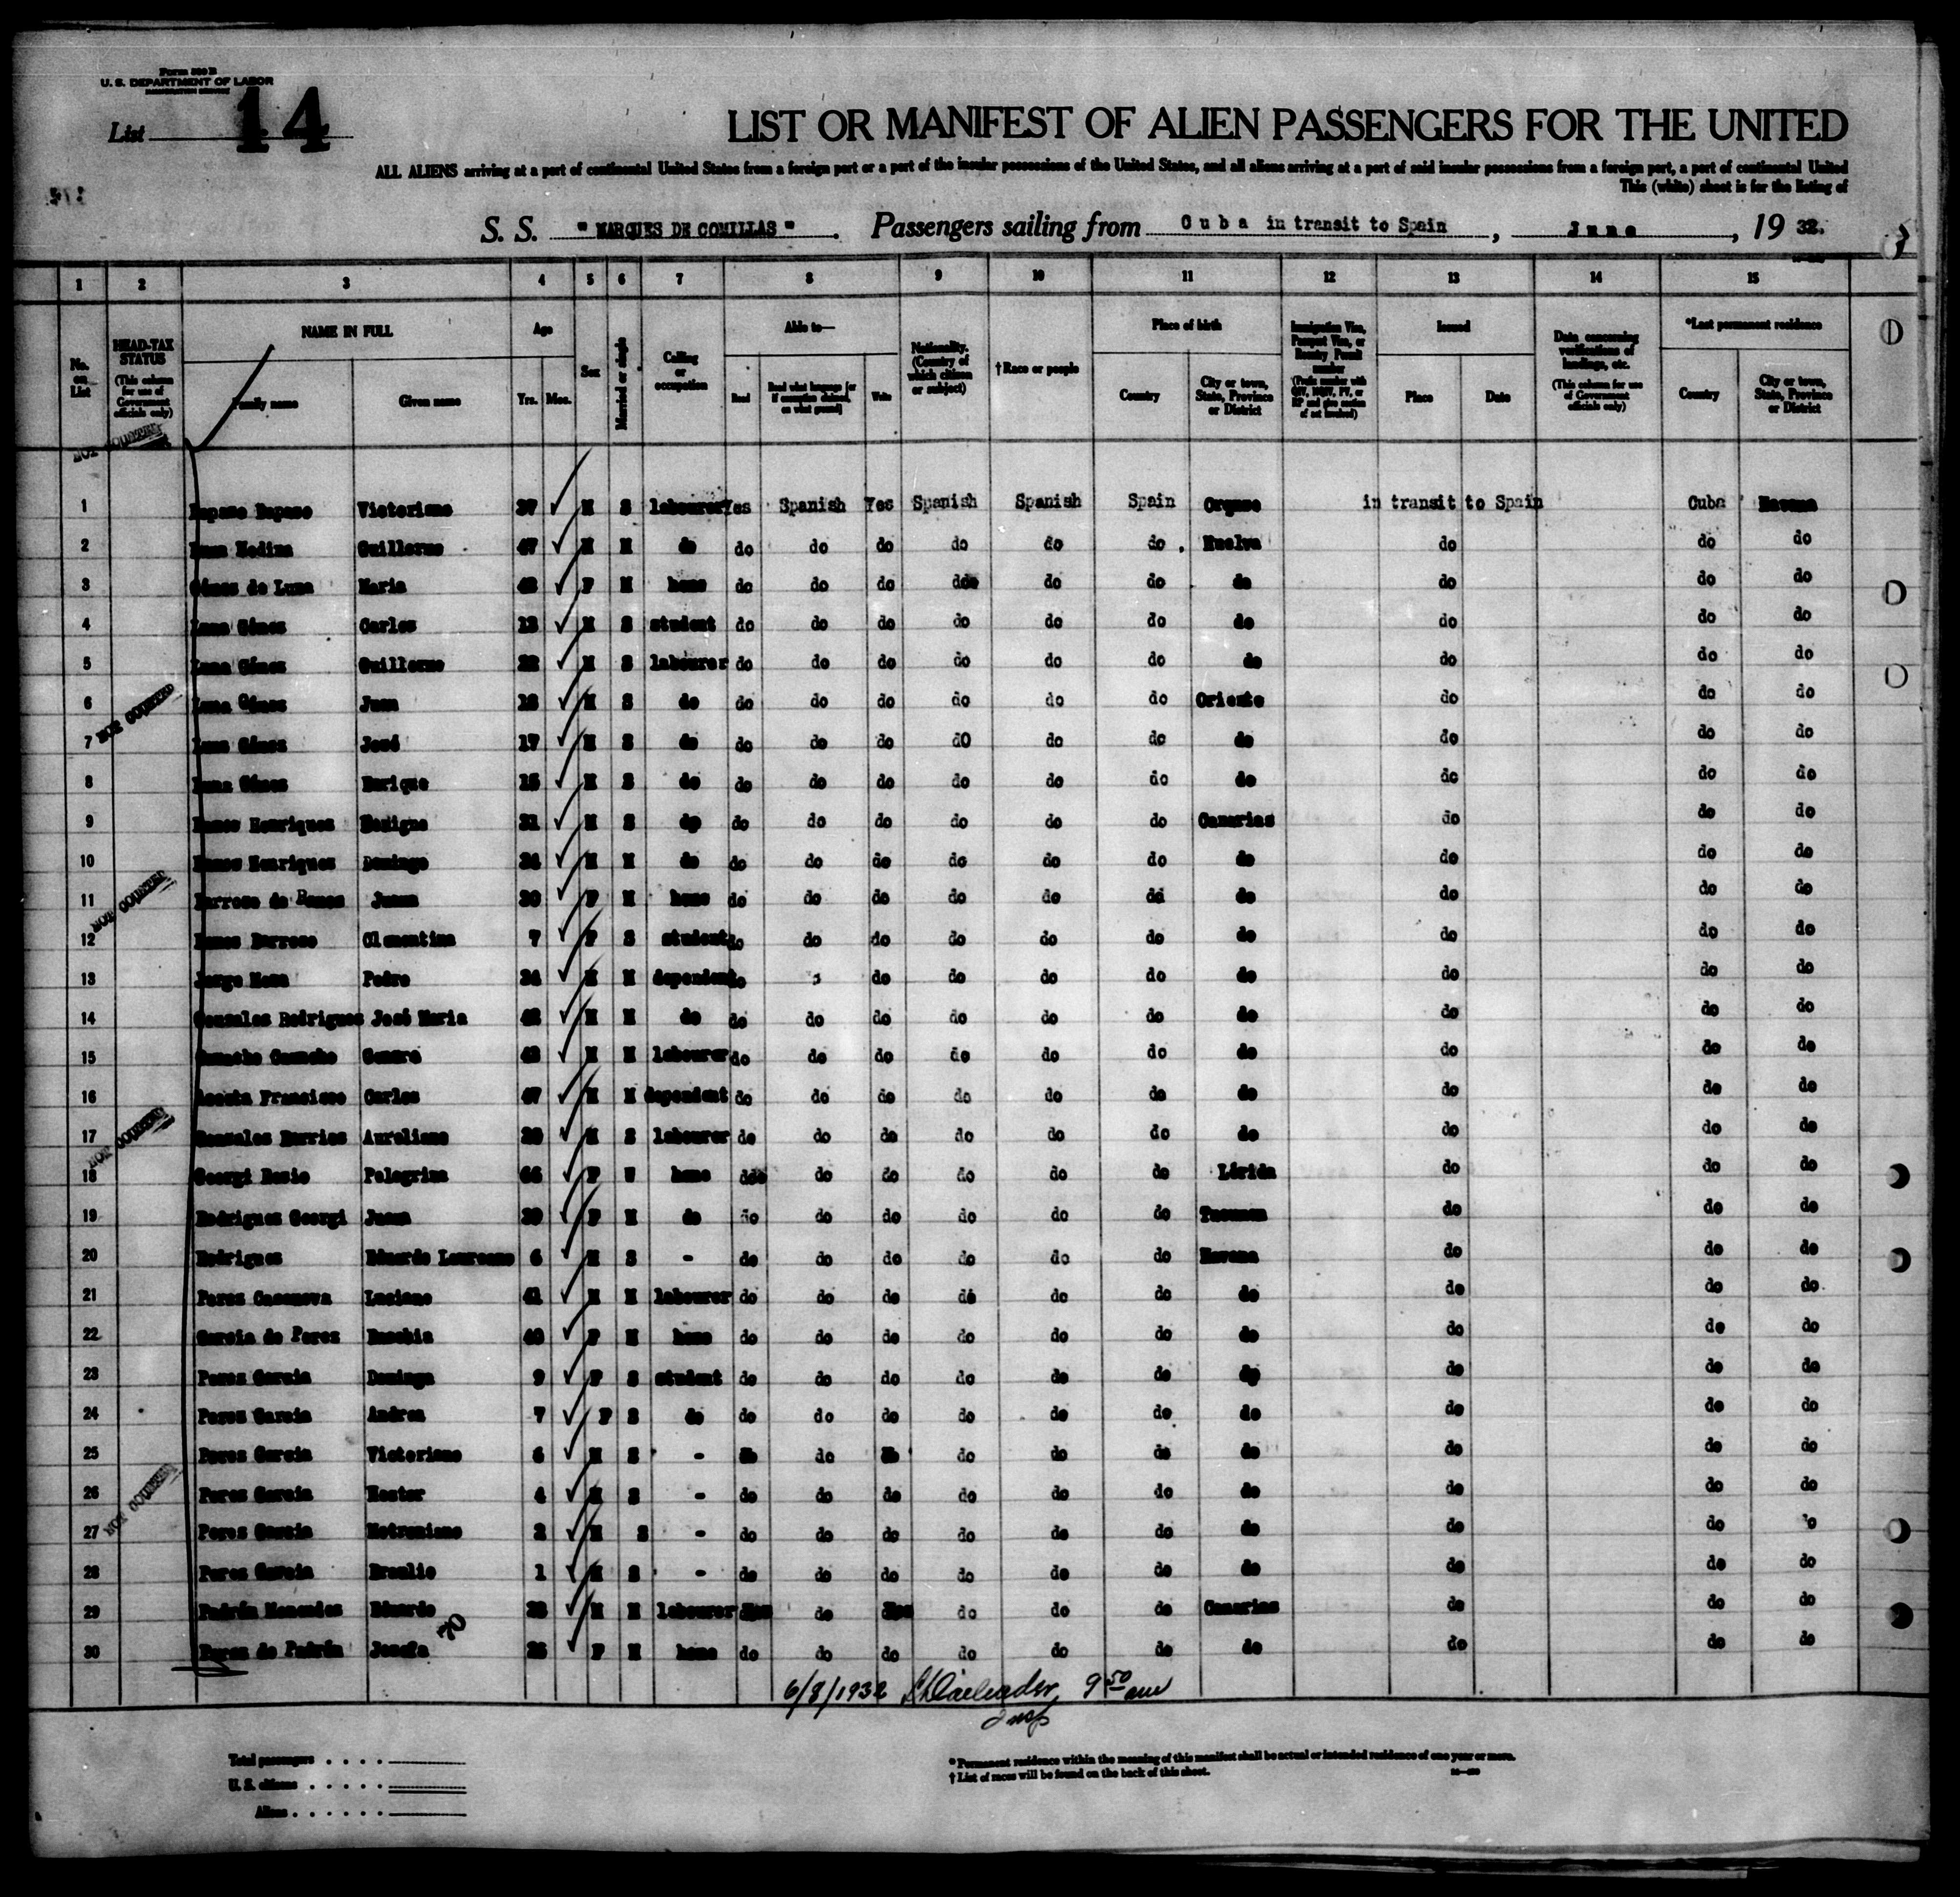 Form 500 B
U. S. DEPARTMENT OF LABOR
IMMIGRATION SERVICE
List 14
LIST OR MANIFEST OF ALIEN PASSENGERS FOR THE UNITED
ALL ALIENS arriving at a port of continental United States from a foreign port or a port of the insular possessions of the United States, and all aliens arriving at a port of said insular possessions from a foreign port, a port of continental United
This (white) sheet is for the listing of
S. S. "MARQUES DE COMILLAS". Passengers sailing from Cuba in transit to Spain, June, 19 32.
1 2 3 4 5 6 7 8 9 10 11 12 13 14 15
No. on List
HEAD-TAX STATUS (This column for use of Government officials only)
NAME IN FULL Family name Given name
Age Yrs. Mos.
Sex
Married or single
Calling or occupation
Able to— Read Read what language [or if exemption claimed, on what ground] Write
Nationality. (Country of which citizen or subject)
†Race or people
Place of birth Country City or town, State, Province or District
Immigration Visa, Passport Visa, or Reentry Permit number
Issued Place Date
Data concerning verifications of landings, etc. (This column for use of Government officials only)
*Last permanent residence Country City or town, State, Province or District
NOT COUNTED
1 Victoriano 37 M S labourer Yes Spanish Yes Spanish Spanish Spain in transit to Spain Cuba Havana
2 Luna Medina Guillermo 47 M M do do do do do do do. Huelva do do do
3 Gómez de Luna Maria F M home do do do do do do do do do do
4 Luna Gómez Carlos 13 M S student do do do do do do do do do do
5 Luna Gómez Guillermo 22 M S labourer do do do do do do do do do do
6 Luna Gómez Juan M S do do do do do do do Oriente do do do
NOT COUNTED
7 Luna Gómez José 17 M S do do do do dO do do do do do do
8 Luna Gómez Enrique 15 M S do do do do do do do do do do do
9 Henriquez Benigno 31 M S dp do do do do do do Canarias do do do
10 Henriquez Domingo 34 M M do do do do do do do do do do do
11 Juana 30 F M home do do do do do dd do do do do
NOT COUNTED
12 Clementina 7 F S student do do do do do do do do do do
13 Jorge Pedro 34 M M dependent do do do do do do do do do
14 Gonzalez Rodriguez José Maria M M do do do do do do do do do do do
15 Camacho Camacho Genaro M M labourer do do do do do do do do do do
16 Acosta Francisco Carlos 47 M M dependent do do do do do do do do do do
17 Gonzalez Barrios Aureliano M S labourer do do do do do do do do do do
NOT COUNTED
18 Georgi Pelegrina 66 F W home do do do do do do Lérida do do do
19 Rodriguez Georgi Juana F M do do do do do do do do do do
20 Rodriguez Eduardo Laureano 6 M S - do do do do do do Havana do do do
21 Perez Casanova Luciano 41 M M labourer do do do do do do do do do do
22 Garcia de Perez Eusebia 40 F M home do do do do do do do do do do
23 Perez Garcia Dominga 9 F S student do do do do do do dp do do do
24 Perez Garcia Andrea 7 F S do do do do do do do do do do do
25 Perez Garcia Victoriano 6 M S - No do No do do do do do do do
26 Perez Garcia Nestor 4 M S - do do do do do do do do do do
NOT COUNTED
27 Perez Garcia 2 M S - do do do do do do do do do do
28 Perez Garcia Braulio 1 M S - do do do do do do do do do do
29 Padrón Menendez Eduardo M M labourer Yes do Yes do do do Canarias do do do
30 Perez de Padrón Josefa F M home do do do do do do do do do do
6/8/1932 9 50 am
Insp
Total passengers . . . .
U. S. citizens . . . . .
Aliens . . . . . .
* Permanent residence within the meaning of this manifest shall be actual or intended residence of one year or more.
† List of races will be found on the back of this sheet.